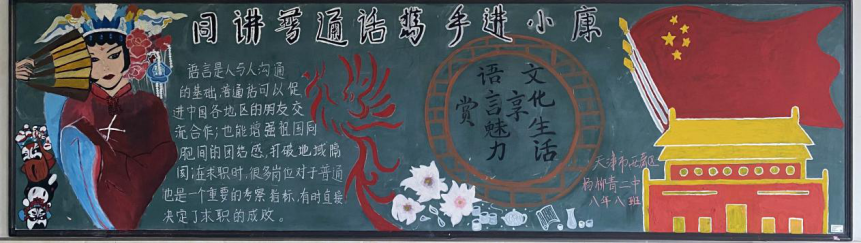 同讲普通话携手进小康
语言是人与人沟通
的基础,普通话可以促
进中国各地区的朋友交
流合作;也能增强祖国同
胞间的团结感,打破地域隔
阂;在求职时,很多岗位对于普通
也是一个重要的考察指标,有时直接
决定了求职的成败。
文化生活
享
语言魅力
赏
天津市西青区
杨柳青二中
八年八班